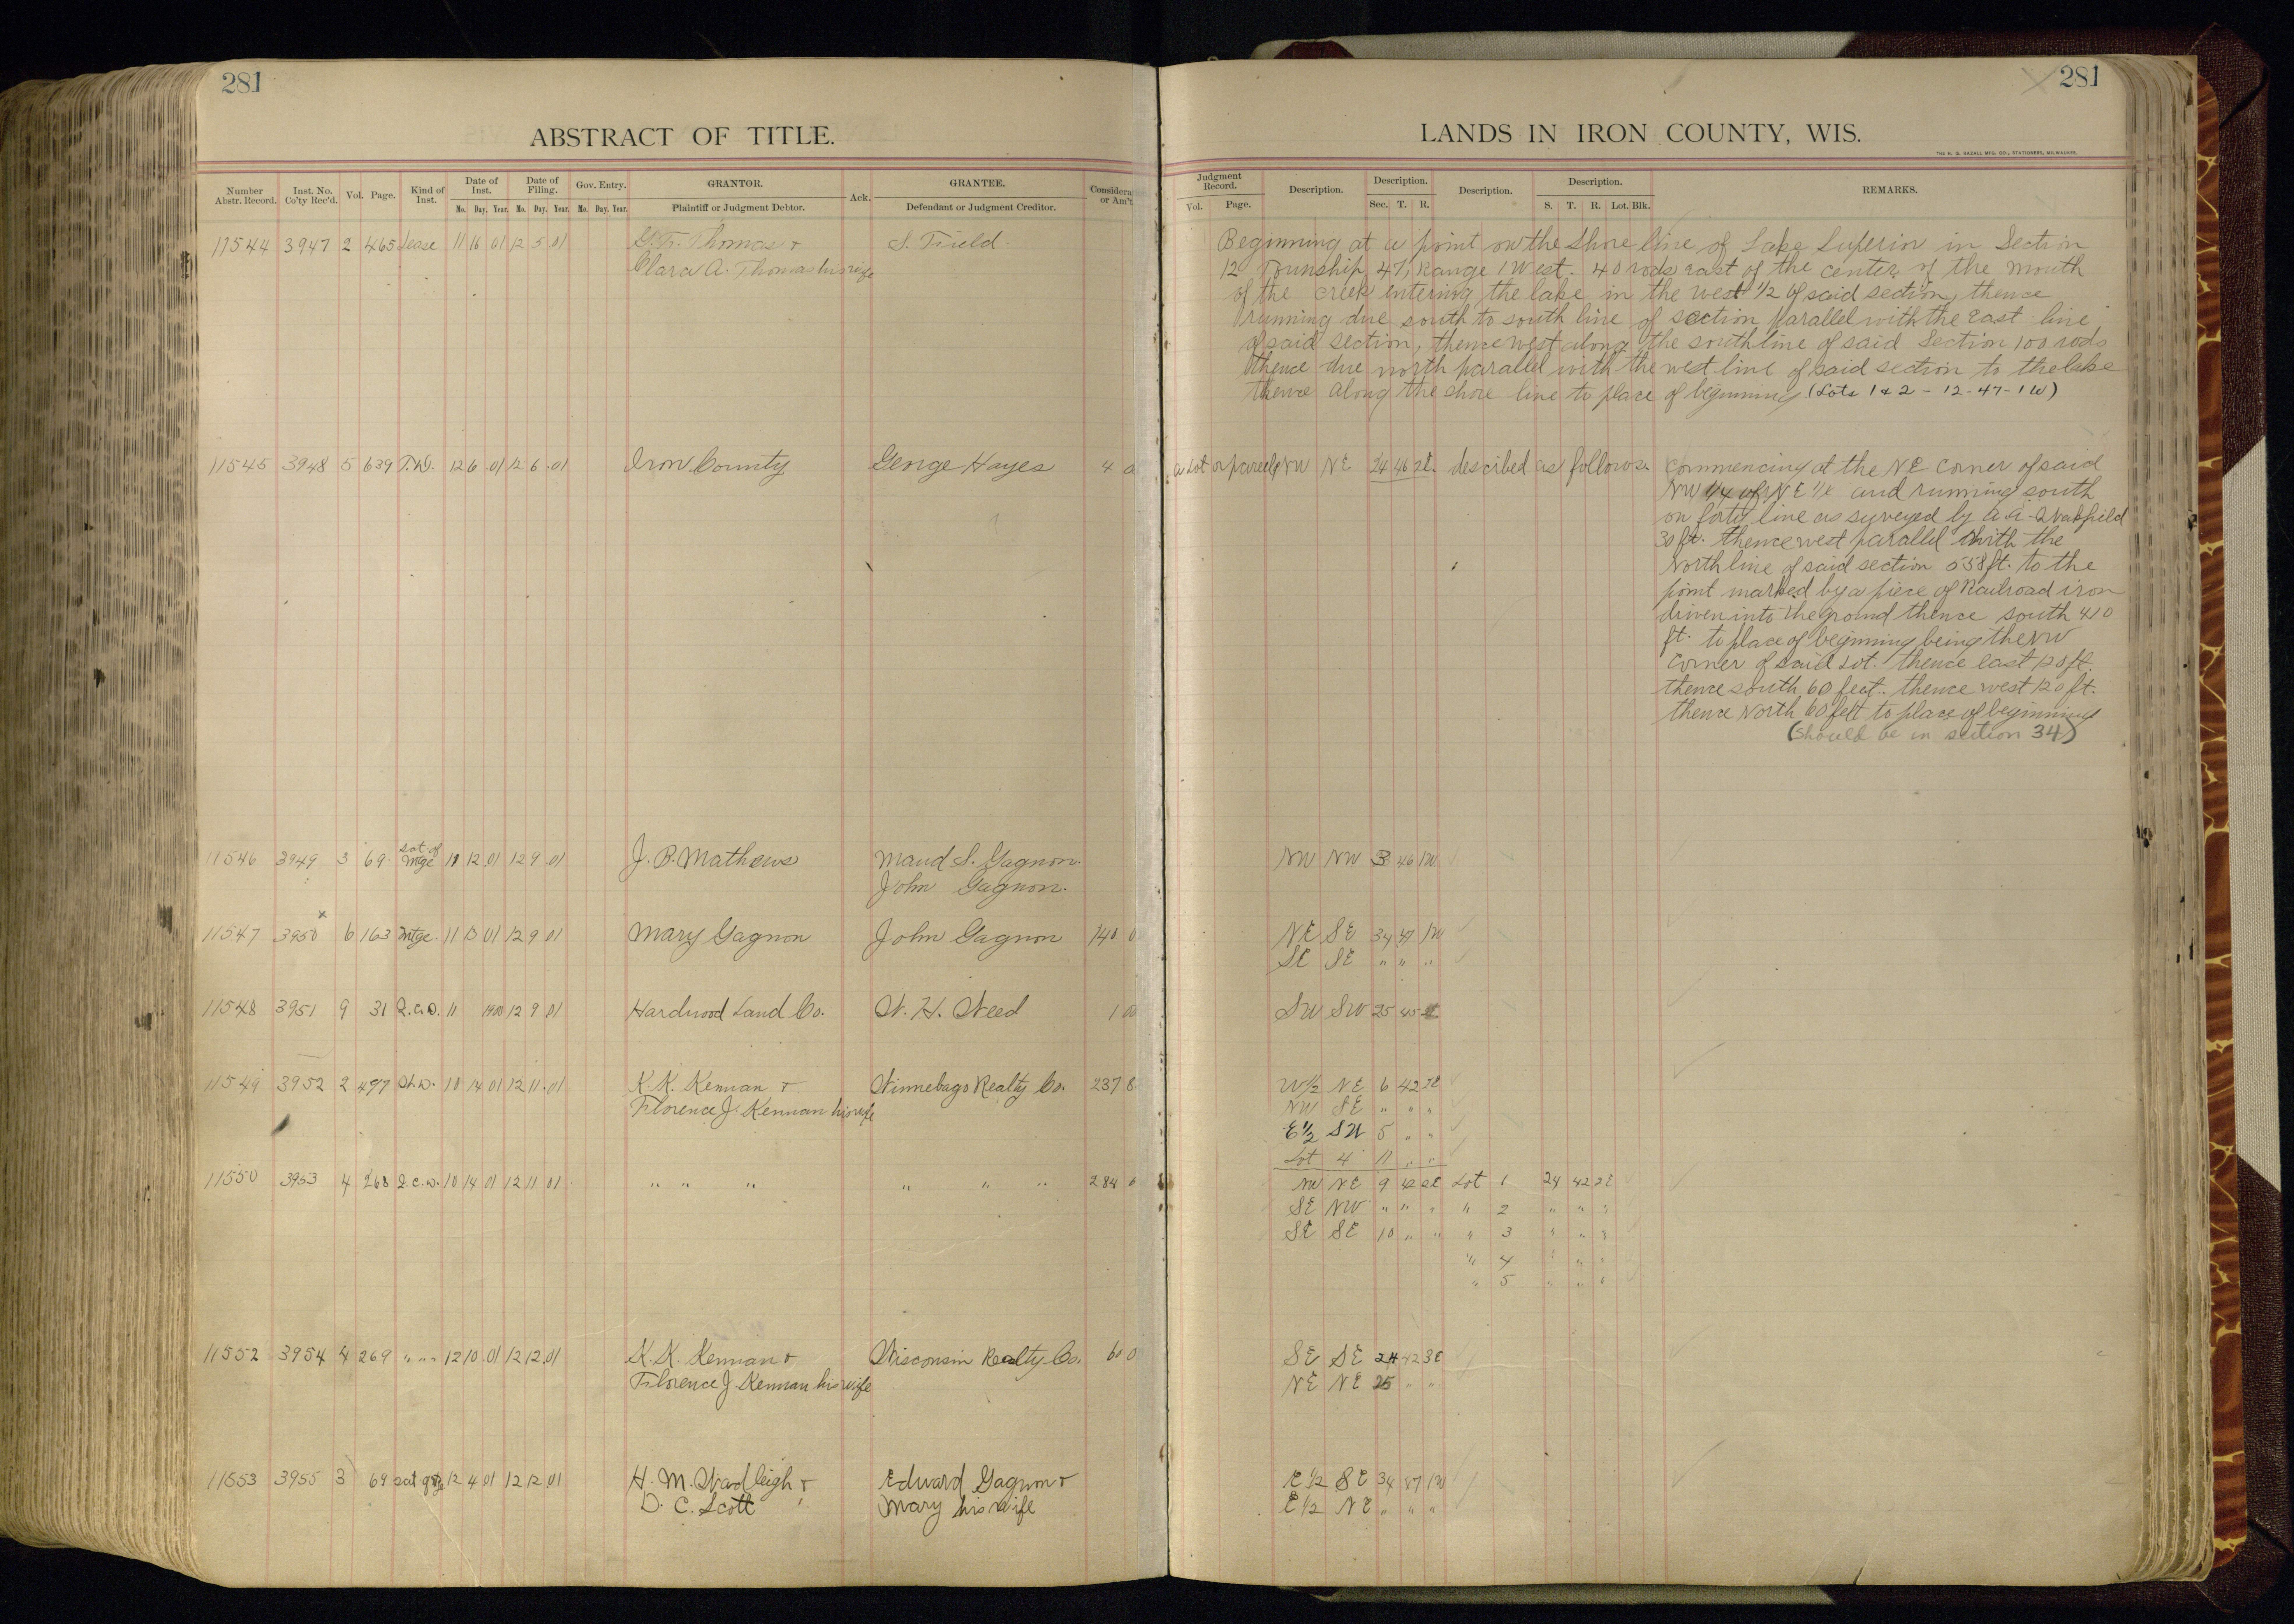 281
281
ABSTRACT OF TITLE.
LANDS IN IRON COUNTY, WIS.
THE H. G. RAZALL MFG. CO., STATIONERS, MILWAUKEE.
Number Abstr. Record. Inst. No. Co'ty Rec'd. Vol. Page. Kind of Inst. Date of Inst. Mo. Day. Year. Date of Filing. Mo. Day. Year. Gov. Entry. Mo. Day. Year. GRANTOR. Plaintiff or Judgment Debtor. Ack. GRANTEE. Defendant or Judgment Creditor. Considera or Am't
Judgment Record. Vol. Page. Description. Description. Sec. T. R. Description. Description. S. T. R. Lot. Blk. REMARKS.
11544 3947 2 465 Lease 11 16 01 12 5 01 Thomas + S. Field
Clara A. Thomas his wife
Beginning at a point on the shore line of Lake Superior in Section
12 Township 47, Range 1 West. 40 rods east of the center of the mouth
of the creek entering the lake in the west 1/2 of said section, thence
running due south to south line of section parallel with the east line
of said section, thence west along the south line of said section 100 rods
thence due north parallel with the west line of said section to the lake
thence along the shore line to place of beginning (Lots 1 & 2 - 12-47-1W)
11545 3948 5 639 T.D. 12 6 01 12 6 01 Iron County George Hayes 4
a Lot or parcel NW NE 24 46 2E. descibed as follows. Commencing at the NE corner of said
NW 1/4 of NE 1/4 and running south
on forty line as surveyed by
30 ft. thence west parallel with the
North line of said section 558 ft. to the
point marked by a piece of Railroad iron
driven into the ground thence south 410
ft. to place of beginning being the NW
corner of said Lot. thence east 120 ft.
thence south 60 feet. thence west 120 ft.
thence North 60 feet to place of beginning
(should be in section 34)
11546 3949 3 69 Sat. of Mtge 11 12 01 12 9 01 J. P. Mathews Maud S. Gagnon. NW NW 3 46 1W
John Gagnon.
11547 3950 6 163 Mtge. 11 13 01 12 9 01 Mary Gagnon John Gagnon 140 0 NE SE 34 47 1W
SE SE " " "
11548 3951 9 31 Q.C.D. 11 1900 12 9 01 Hardwood Land Co. W. H. Weed 1 00 SW SW 25 45
11549 3952 2 497 W.D. 10 14 01 12 11 01 K. K. Kennan + Winnebago Realty Co. 237 8 W 1/2 NE 6 42 2E
Florence J. Kennan his wife NW SE " " "
E 1/2 SW 5 " "
Lot 4 11 " "
11550 3953 4 268 Q.C.D. 10 14 01 12 11 01 " " " " " " 284 0 NW NE 9 42 2E Lot 1 24 42 2E
SE NW " " " " 2 " " "
SE SE 10 " " " 3 " " "
" 4 " " "
" 5 " " "
11552 3954 4 269 " " " 12 10 01 12 12 01 K. K. Kennan + Wisconsin Realty Co. 60 0 SE SE 24 42 3E
Florence J. Kennan his wife NE NE 25 " "
11553 3955 3 69 Sat. of Mtg 12 4 01 12 12 01 H. M. Wadleigh + Edward Gagnon + E 1/2 SE 34 47 1W
D. C. Scott Mary his wife E 1/2 NE " " "